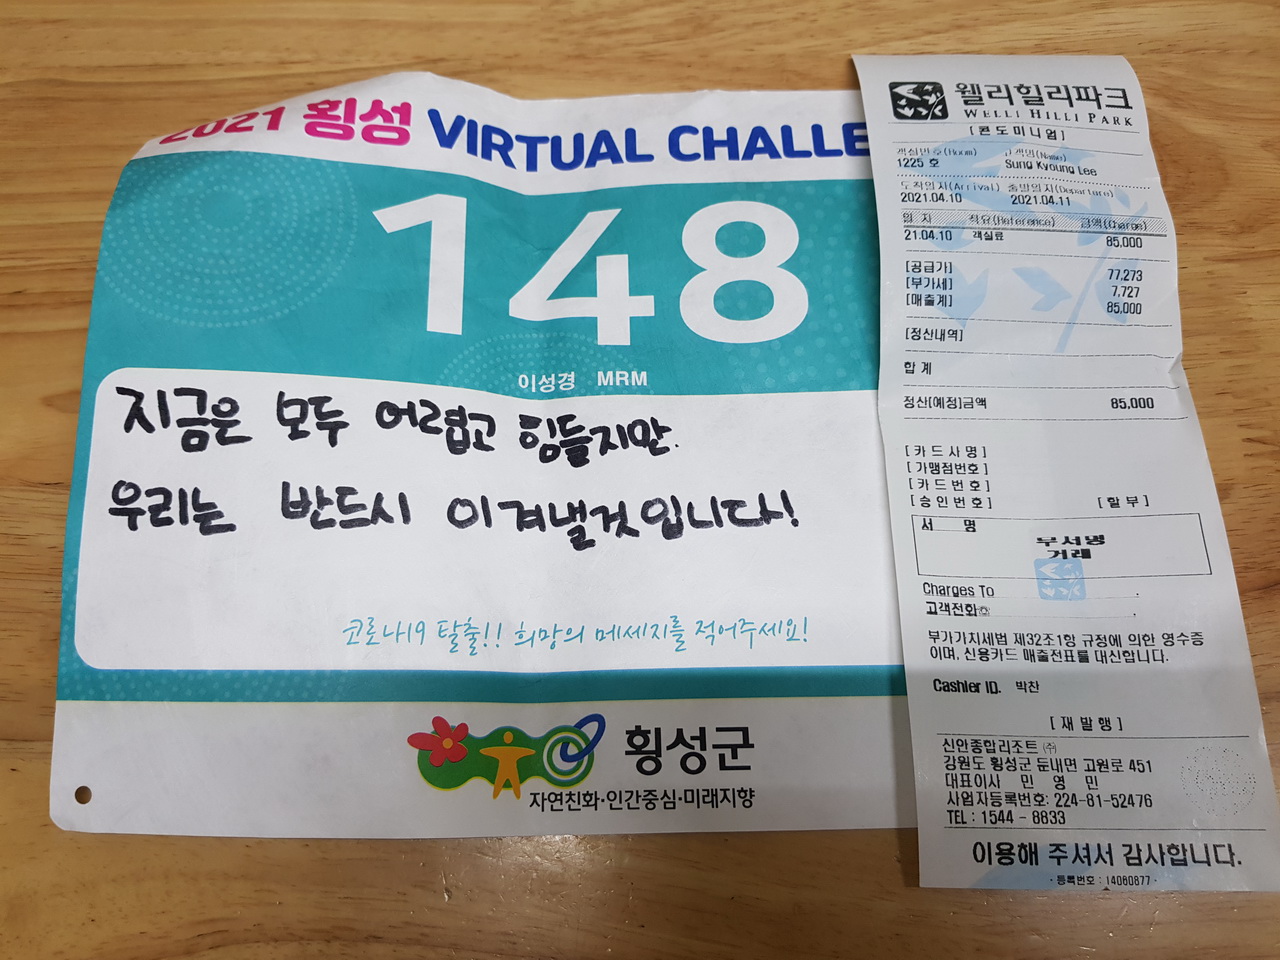 2021 횡성 VIRTUAL CHALLE
148
이성경 MRM
지금은 모두 어렵고 힘들지만.
우리는 반드시 이겨낼것입니다!
코로나19 탈출!! 희망의 메세지를 적어주세요!
횡성군
자연친화·인간중심·미래지향
웰리힐리파크
WELLI HILLI PARK
[콘도미니엄]
객실번호(Room) 고객명(Name)
1225 호 Sung Kyoung Lee
도착일자(Arrival) 출발일자(Departure)
2021.04.10 2021.04.11
일 자 적요(Reference) 금액(Charge)
21.04.10 객실료 85,000
[공급가] 77,273
[부가세] 7,727
[매출계] 85,000
[정산내역]
합 계
정산[예정]금액 85,000
[카드사명]
[가맹점번호]
[카드번호]
[승인번호] [할부]
서 명
무서명
거래
Charges To
고객전화☏
부가가치세법 제32조1항 규정에 의한 영수증
이며, 신용카드 매출전표를 대신합니다.
Cashier ID. 박찬
[재발행]
신안종합리조트 ㈜
강원도 횡성군 둔내면 고원로 451
대표이사 민 영 민
사업자등록번호: 224-81-52476
TEL : 1544 - 8833
이용해 주셔서 감사합니다.
· 등록번호 : 14080877 ·